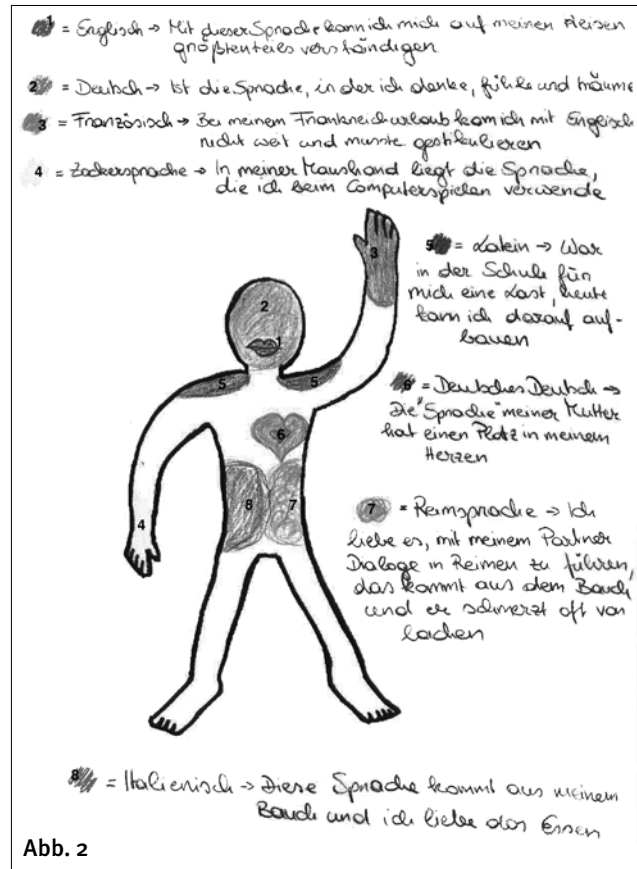 1 = Englisch → Mit dieser Sprache kann ich mich auf meinen Reisen
größtenteils verständigen
2 = Deutsch → Ist die Sprache, in der ich denke, fühle und träume
3 = Französisch → Bei meinem Frankreichurlaub kam ich mit Englisch
nicht weit und musste gestikulieren
4 = Zockersprache → In meiner Maushand liegt die Sprache,
die ich beim Computerspielen verwende
5 = Latein → War
in der Schule für
mich eine Last, heute
kann ich darauf auf-
bauen
6 = Deutsches Deutsch →
Die "Sprache" meiner Mutter
hat einen Platz in meinem
Herzen
7 = Reimsprache → Ich
liebe es, mit meinem Partner
Dialoge in Reimen zu führen,
das kommt aus dem Bauch
und er schmerzt oft von
lachen
3
2
1
5 5
6
8 7
4
8 = Italienisch → Diese Sprache kommt aus meinem
Bauch und ich liebe das Essen
Abb. 2